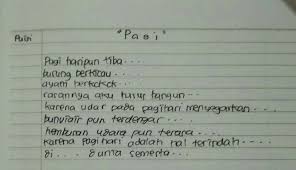 "Pagi"
Puisi
Pagi haripun tiba....
burung berkicau....
ayam berkokok...
rasanya aku turut bangun...
karena udar pada pagi hari menyegarkan....
pun terdengar....
hembusan udara pun terasa....
karena Pagi hari adalah hal terindah....
di.... dunia semesta....